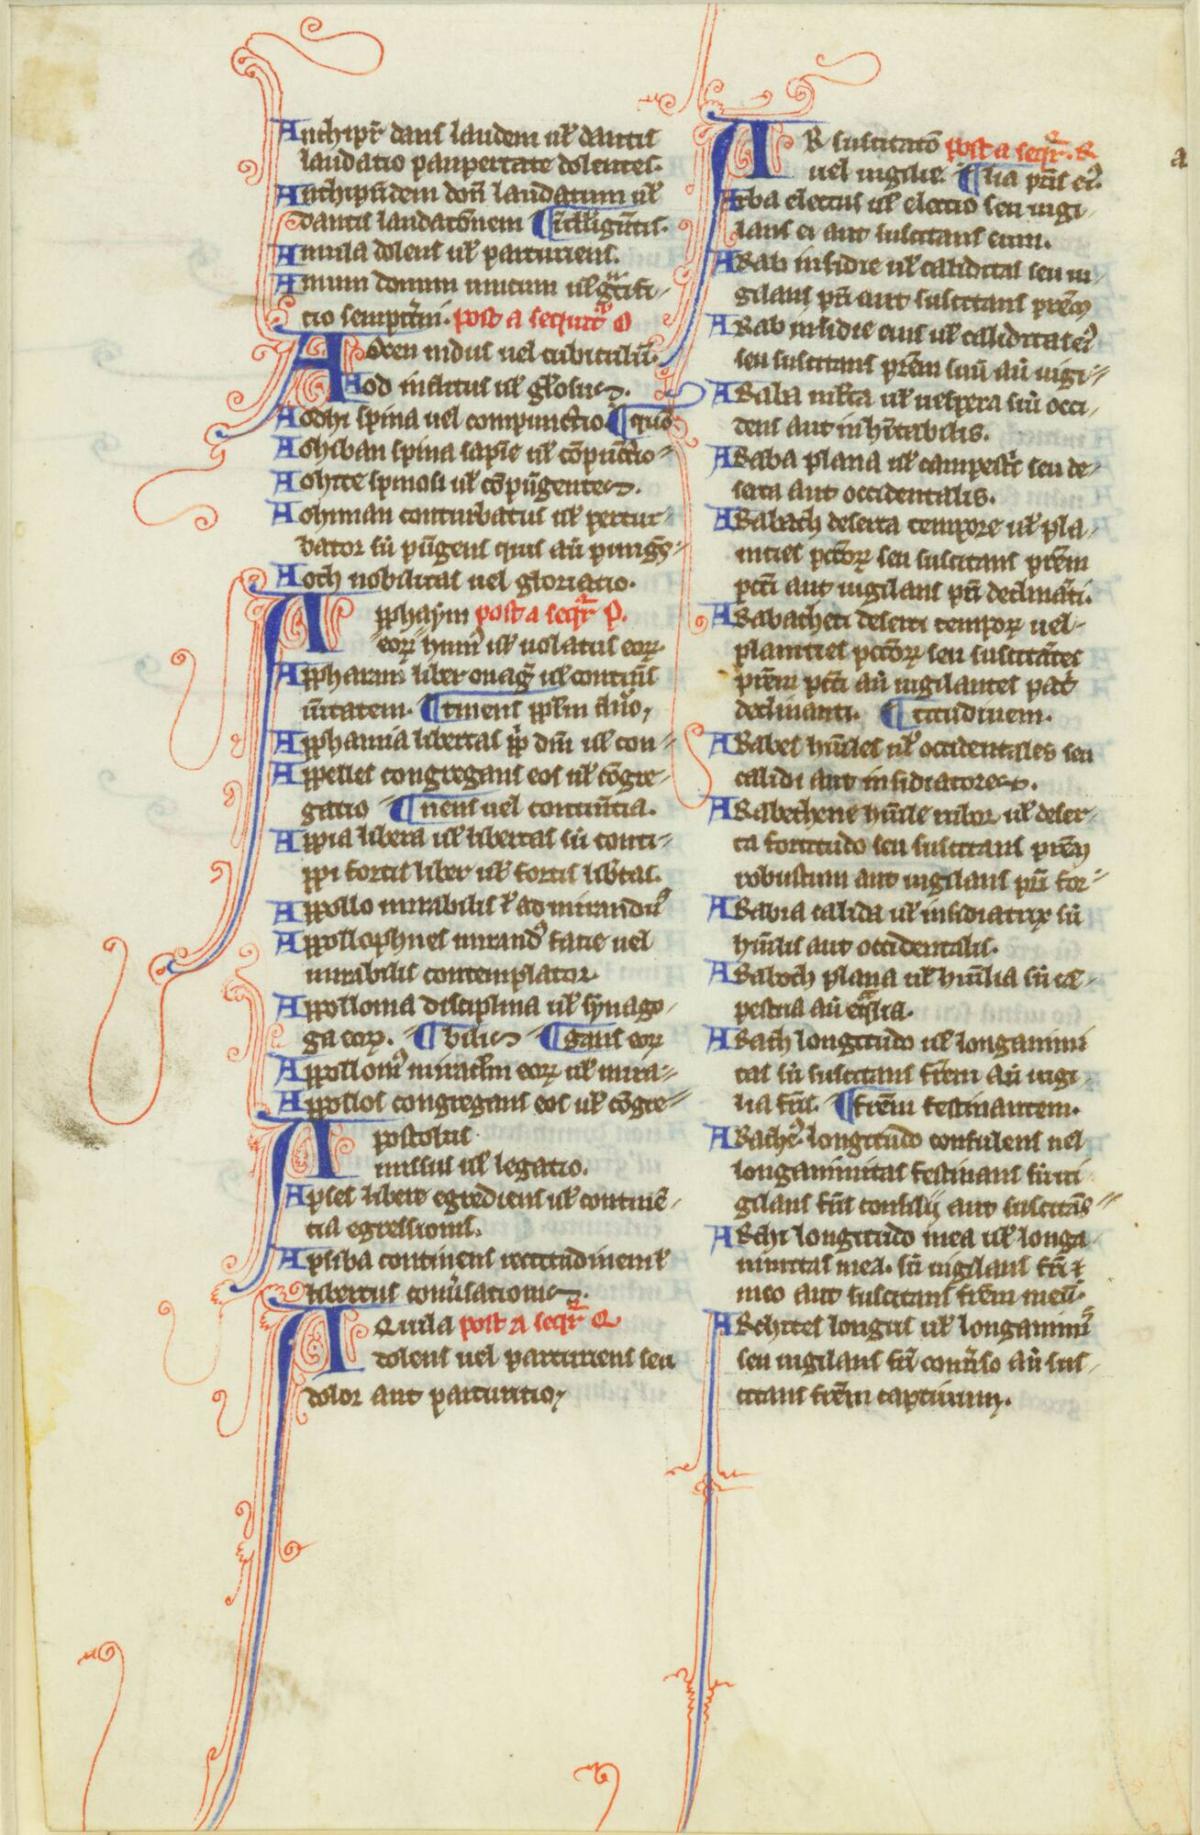 Anthip̄r dans laudem ul̄ dantis
laudatio paupertate dolentes.
Anthipādem don̄ laudatum ul̄
dantis laudatōnem ¶ītelligētis.
Anuila dolens ul̄ parturiens.
Anum donum unicum ul̄
tio post a sequit᷑ O
Aoden nidus uel cubiculū.
Aod inclitus ul̄ gl̄osus.
Aodhi spina uel compunctio ¶quis
Aohiban spina sapīe ul̄ cōpūctio
Aohite spinosi ul̄ cōpūgentes.
Aohiman conturbatus ul̄ pertur
bator sū pūgens quis aū pungēs
Aoth nobilitas uel gloriatio.
Apphaym post a seqr᷑ P.
eoꝝ ul̄ uolatus eoꝝ
Appharim liber ul̄
ūitatem. ¶tinens
Apphannia libertas dn̄i ul̄ con
Appelles congregans eos ul̄ cōgre
gatio ¶nens uel continētia.
Appia libera ul̄ libertas sū conti
ppi fortis liber ul̄ fortis lib̄tas.
Appollo mirabilis ł admirandus
Appollophnes mirandꝰ facie uel
mirabilis contemplator.
Appollonia disciplina ul̄ synago
ga eoꝝ. ¶bilis ¶gans eoꝝ
Appolloni᷑ miraclm̄ eoꝝ ul̄ mira
Appollos congregans eos ul̄ cōgre
Apostolus
missus ul̄ legatio.
Apses libere egrediens ul̄ continē
tia egressionis.
Apsiba continens rectitudinem ł
libertas conūsationis.
AQuila post A seqr᷑ Q
dolens uel parturiens seu
dolor aut parturitio,
AR suscitatō post a seqr᷑. R
uel uigilie. ¶lia p̄ris ei᷑.
Arba electus ul̄ electio seu uigi
lans ei aut suscitans eum.
ARab insidie ul̄ caliditas seu ui
gilans p̄ri aut suscitans p̄rem
ARab insidie eius ul̄ caliditas ei᷑
seu suscitans p̄rem suū aū uigi
ARaba ul̄ uespera siū occi
dens aut inh̄itabilis.
ARaba plana ul̄ campest᷑ seu de
serta aut occidentalis.
ARabath deserta tempore ul̄ pla
nities pctōꝝ seu suscitans p̄rem
pcti aut uigilans p̄ri declināti.
ARabathei deserti tempoꝝ uel
planities pctōꝝ seu suscitātes
p̄rem pcti aū uigilantes pat̄
declinanti. ¶titudinem.
ARabes hūiles ul̄ occidentales seu
calidi aut insidiatores.
ARabethene hūile rubor ul̄ deser
ta fortitudo seu suscitans p̄rem
robustum aut uigilans p̄ri for
ARabia calida ul̄ insidiatrix sū
hūilis aut occidentalis.
ARaboth plana ul̄ hūilia sū cā
pestria aū
ARach longitudo ul̄ longanimi
tas sū suscitans fr̄em aū uigi
lia fr̄is. ¶fr̄em festinantem.
ARache᷑ longitudo consulens uel
longanimitas festinans sū ui
gilans fr̄is consilij aut suscitās
ARchi longitudo mea ul̄ longa
nimitas mea. sū uigilans fr̄i
meo aut suscitans fr̄em meū.
ARchites longus ul̄ longanimis
seu uigilans fr̄i conūso aū sus
citans fr̄em captiuum.
a